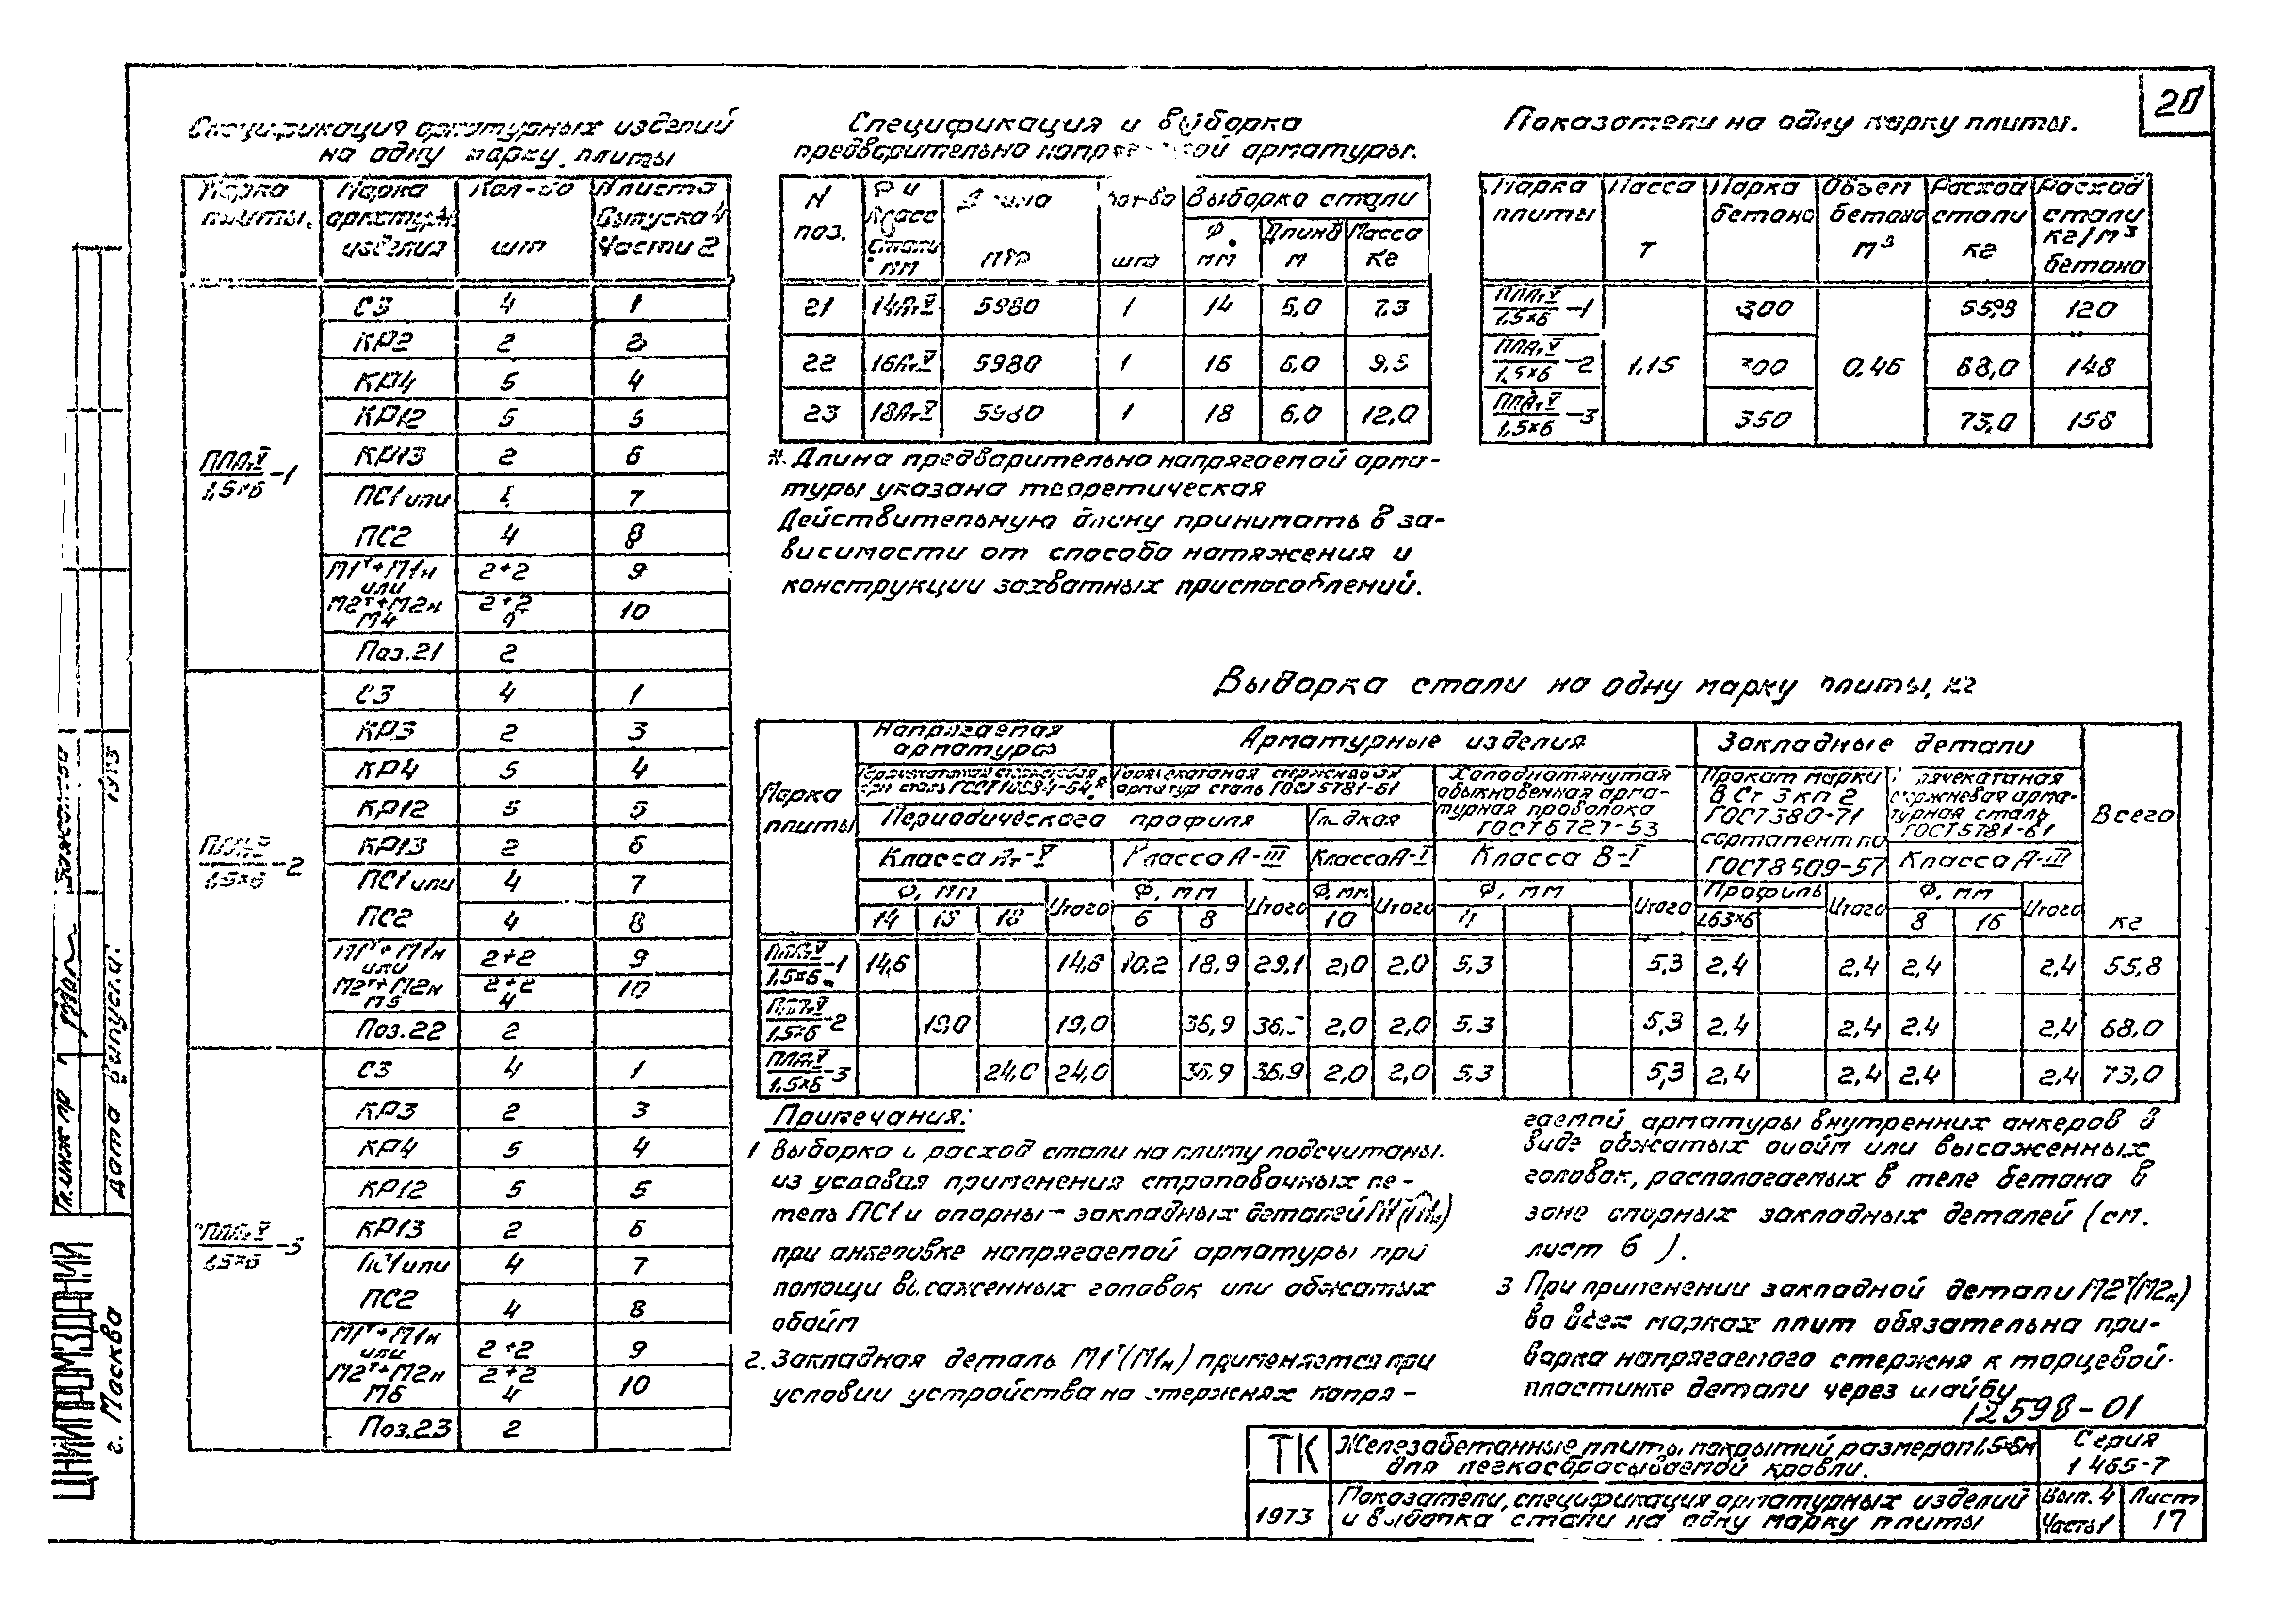 20
Спецификация арматурных изделий
на одну марку плиты
Марка плиты. | Марка арматурн. изделия | Кол-во шт | №листа Выпуска 4 Части 2
ППАтV/1,5×6 -1
С3 | 4 | 1
КР2 | 2 | 2
КР4 | 5 | 4
КР12 | 5 | 5
КР13 | 2 | 6
ПС1 или | 4 | 7
ПС2 | 4 | 8
М1т+М1н | 2+2 | 9
или
М2т+М2н | 2+2 | 10
М4 | 4
Поз.21 | 2
ППАтV/1,5×6 -2
С3 | 4 | 1
КР3 | 2 | 3
КР4 | 5 | 4
КР12 | 5 | 5
КР13 | 2 | 6
ПС1 или | 4 | 7
ПС2 | 4 | 8
М1т+М1н | 2+2 | 9
или
М2т+М2н | 2+2 | 10
М5 | 4
Поз.22 | 2
ППАтV/1,5×6 -3
С3 | 4 | 1
КР3 | 2 | 3
КР4 | 5 | 4
КР12 | 5 | 5
КР13 | 2 | 6
ПС1 или | 4 | 7
ПС2 | 4 | 8
М1т+М1н | 2+2 | 9
или
М2т+М2н | 2+2 | 10
М6 | 4
Поз.23 | 2
Спецификация и выборка
предварительно напрягаемой арматуры.
N поз. | Ф и класс стали мм | Длина мм* | Кол-во шт | Выборка стали
Ф мм | Длина м | Масса кг
21 | 14АтV | 5980 | 1 | 14 | 6,0 | 7,3
22 | 16АтV | 5980 | 1 | 16 | 6,0 | 9,5
23 | 18АтV | 5980 | 1 | 18 | 6,0 | 12,0
*. Длина предварительно напрягаемой арма-
туры указана теоретическая
Действительную длину принимать в за-
висимости от способа натяжения и
конструкции захватных приспособлений.
Показатели на одну марку плиты.
Марка плиты | Масса т | Марка бетона | Объем бетона м³ | Расход стали кг | Расход стали кг/м³ бетона
ППАтV/1,5×6 -1 | 1,15 | 300 | 0,46 | 55,8 | 120
ППАтV/1,5×6 -2 | 300 | 68,0 | 148
ППАтV/1,5×6 -3 | 350 | 73,0 | 158
Выборка стали на одну марку плиты, кг
Марка плиты | Напрягаемая арматура | Арматурные изделия | Закладные детали | Всего кг
Горячекатаная стержневая арматур сталь ГОСТ 5781-61 | Холоднотянутая обыкновенная арматурная проволока ГОСТ 6727-53 | Прокат марки В Ст 3 кп 2 ГОСТ 380-71 сортамент по ГОСТ 8509-57 | Горячекатаная стержневая арматурная сталь ГОСТ 5781-61
Периодического профиля | Гладкая
Класса Ат-V | Класса А-III | Класса А-I | Класса В-I | Класса А-III
Ф, мм | Итого | Ф, мм | Итого | Ф, мм | Итого | Ф, мм | Итого | Профиль | Итого | Ф, мм | Итого
14 | 16 | 18 | 6 | 8 | 10 | 4 | L63×6 | 8 | 16
ППАтV/1,5×6 -1 | 14,6 | 14,6 | 10,2 | 18,9 | 29,1 | 2,0 | 2,0 | 5,3 | 5,3 | 2,4 | 2,4 | 2,4 | 2,4 | 55,8
ППАтV/1,5×6 -2 | 19,0 | 19,0 | 36,9 | 36,9 | 2,0 | 2,0 | 5,3 | 5,3 | 2,4 | 2,4 | 2,4 | 2,4 | 68,0
ППАтV/1,5×6 -3 | 24,0 | 24,0 | 36,9 | 36,9 | 2,0 | 2,0 | 5,3 | 5,3 | 2,4 | 2,4 | 2,4 | 2,4 | 73,0
Примечания:
1 Выборка и расход стали на плиту подсчитаны.
из условия применения строповочных пе-
тель ПС1 и опорных закладных деталей М1т(М1н)
при анкеровке напрягаемой арматуры при
помощи высаженных головок или обжатых
обойм
2. Закладная деталь М1т(М1н) применяется при
условии устройства на стержнях напря-
гаемой арматуры внутренних анкеров в
виде обжатых обойм или высаженных
головок, располагаемых в теле бетона в
зоне опорных закладных деталей (см.
лист 6 ).
3 При применении закладной детали М2т(М2н)
во всех марках плит обязательна при-
варка напрягаемого стержня к торцевой
пластинке детали через шайбу
12598-01
ТК | Железобетонные плиты покрытий размером 1,5×6м
для легкосбрасываемой кровли. | Серия
1 465-7
1973 | Показатели, спецификация арматурных изделий
и выборка стали на одну марку плиты | Вып. 4
Часть 1 | Лист
17
ЦНИИПРОМЗДАНИЙ
г. Москва
Гл. инж пр
Дата выпуска